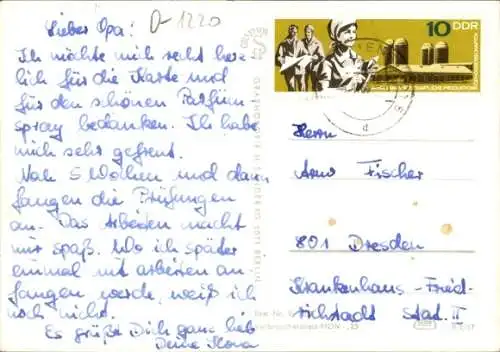 Lieber Opa!
D-1220
Ich möchte mich recht herz-
lich für die Karte und
für den schönen Parfüm-
spray bedanken. Ich habe
mich sehr gefreut.
Noch 5 Wochen und dann
fangen die Prüfungen
an. Das Arbeiten macht
mir spaß. Wo ich später
einmal mit arbeiten an-
fangen werde, weiß ich
noch nicht.
Es grüßt Dich ganz lieb
Deine Ilona
10 DDR
Herrn
Arno Fischer
801 Dresden
Krankenhaus-Fried-
richstadt Stat. II